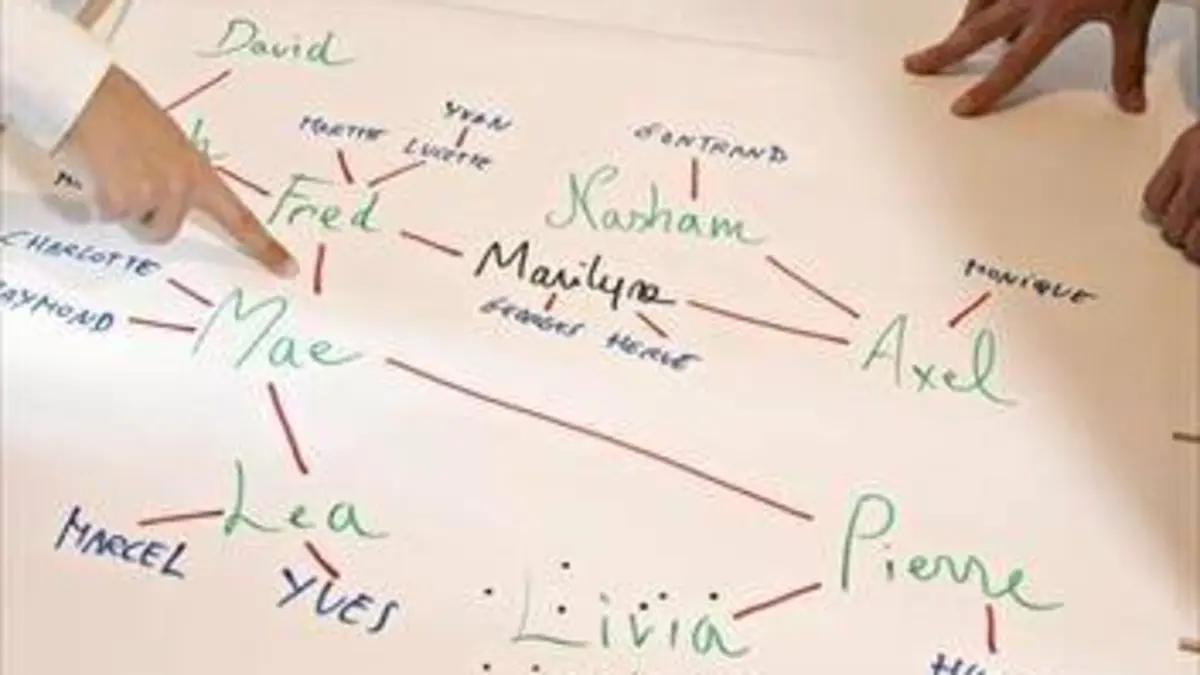 David
YVAN
MARTHE
LUCETTE
GONTRAND
Fred
Nasham
CHARLOTTE
Marilyn
MONIQUE
RAYMOND
GEORGES
HERVE
Mae
Axel
Lea
MARCEL
YVES
Pierre
Livia